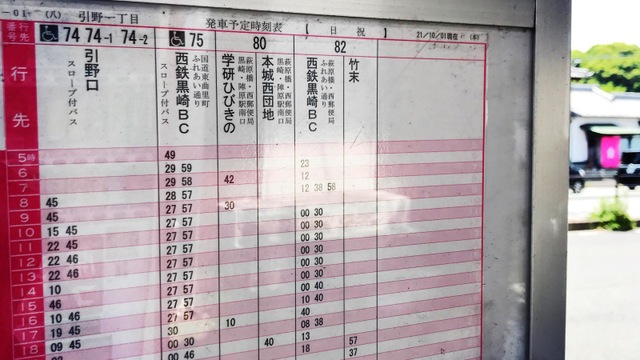 -01- (八) 引野一丁目 発車予定時刻表 【 日 祝 】 21/10/01現在
行先番号 74 74-1 74-2 75 80 82
行先
引野口 スロープ付バス
国道東曲里町 ふれあい通り 西鉄黒崎BC スロープ付バス
萩原橋・西郵便局 黒崎・陣原駅南口 学研ひびきの
萩原橋・西郵便局 黒崎・陣原駅南口 本城西団地
萩原橋・西郵便局 ふれあい通り 西鉄黒崎BC
竹末
5時 49
6 29 59 23
7 29 58 42 12
8 45 28 57 12 38 58
9 45 27 57 30
10 15 45 27 57 00 30
11 22 45 27 57 00 30
12 22 46 27 57 00 30
13 22 46 27 57 00 30
14 10 27 57 00 30
15 46 27 57 00 30
16 10 46 27 57 10 40
17 19 45 30 10 40
18 09 45 00 30 08 38
00 46 40 13 57
18 37